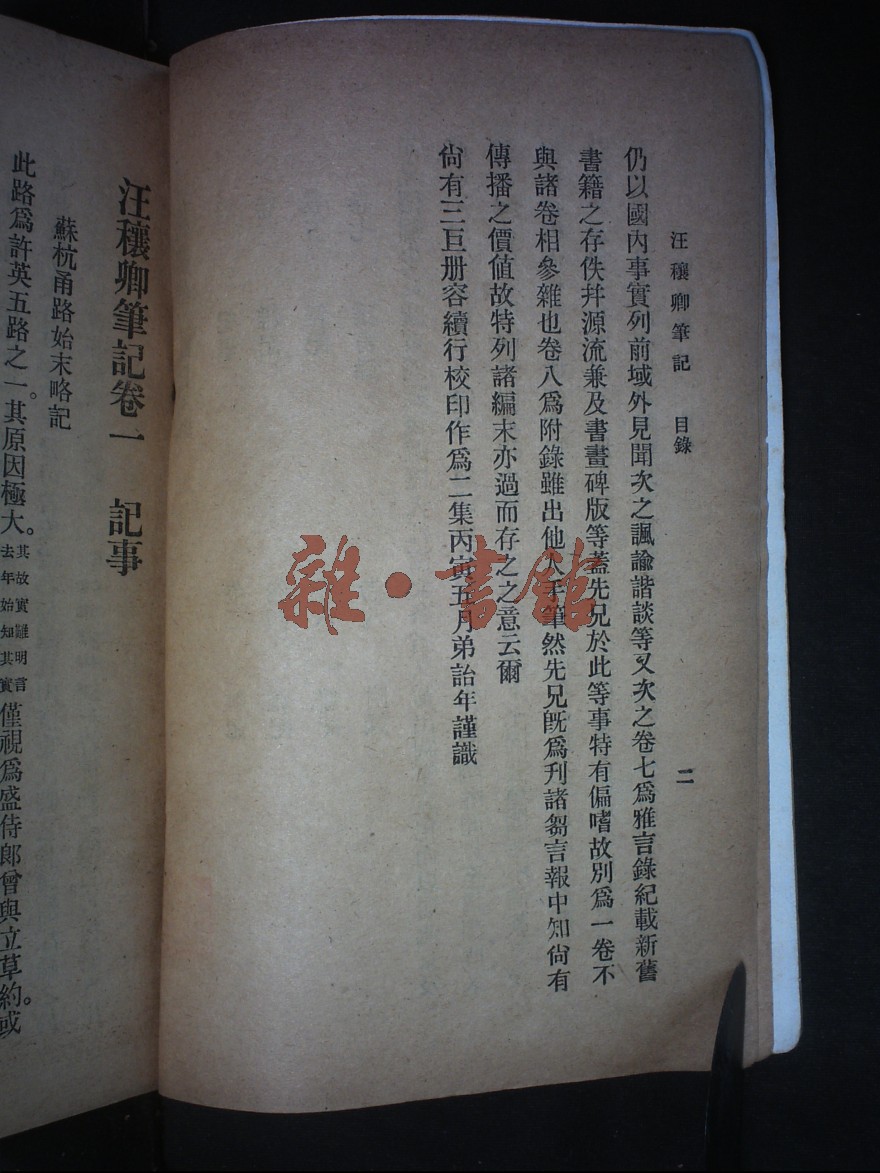 汪穰卿筆記 目錄 二
仍以國內事實列前域外見聞次之諷諭諧談等又次之卷七爲雅言錄紀載新舊
書籍之存佚幷源流兼及書畫碑版等蓋先兄於此等事特有偏嗜故別爲一卷不
與諸卷相參雜也卷八爲附錄雖出他人手筆然先兄旣爲刋諸芻言報中知尙有
傳播之價値故特列諸編末亦過而存之之意云爾
尙有三巨册容續行校印作爲二集丙寅五月弟詒年謹識
雜·書館
汪穰卿筆記卷一 記事
蘇杭甬路始末略記
此路爲許英五路之一。其原因極大。其故實難明言去年始知其實僅視爲盛侍郎曾與立草約。或